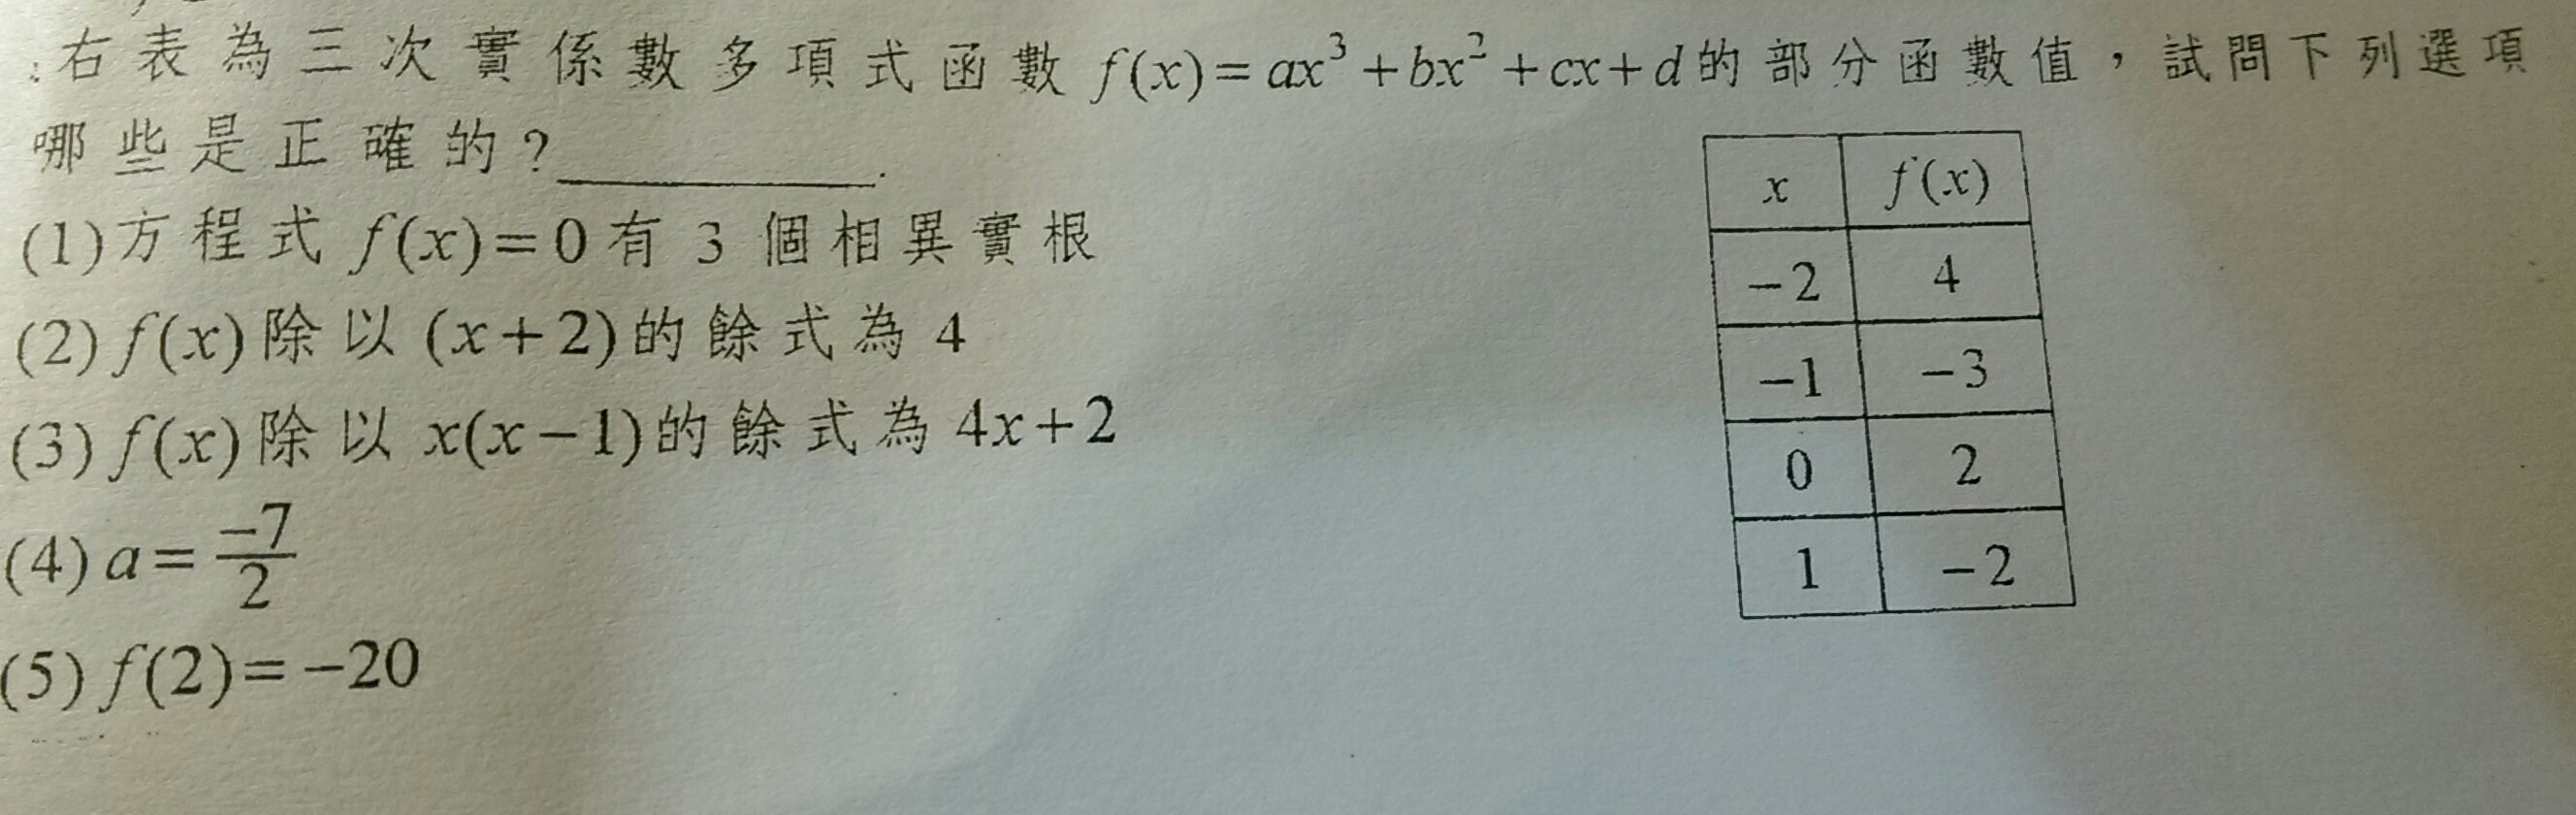 右表為三次實係數多項式函數 f(x)=ax³+bx²+cx+d的部分函數值,試問下列選項
哪些是正確的?__________.
(1)方程式 f(x)=0有 3 個相異實根
(2) f(x)除以 (x+2)的餘式為 4
(3) f(x)除以 x(x−1)的餘式為 4x+2
(4) a= −7/2
(5) f(2)=−20
x f(x)
−2 4
−1 −3
0 2
1 −2